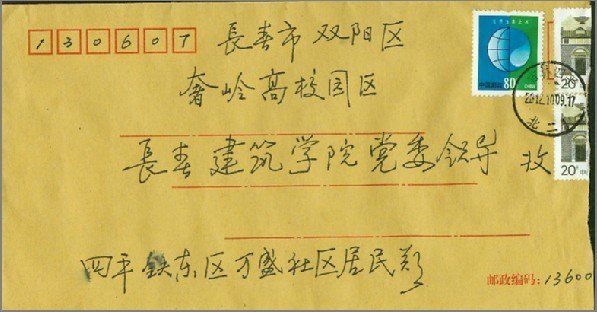 130607
長春市双阳区
奢岭高校园区
長春建筑学院党委领导 收
四平铁东区万盛社区居民郑
邮政编码:13600
80
20
20
2012.10.09.17
北二